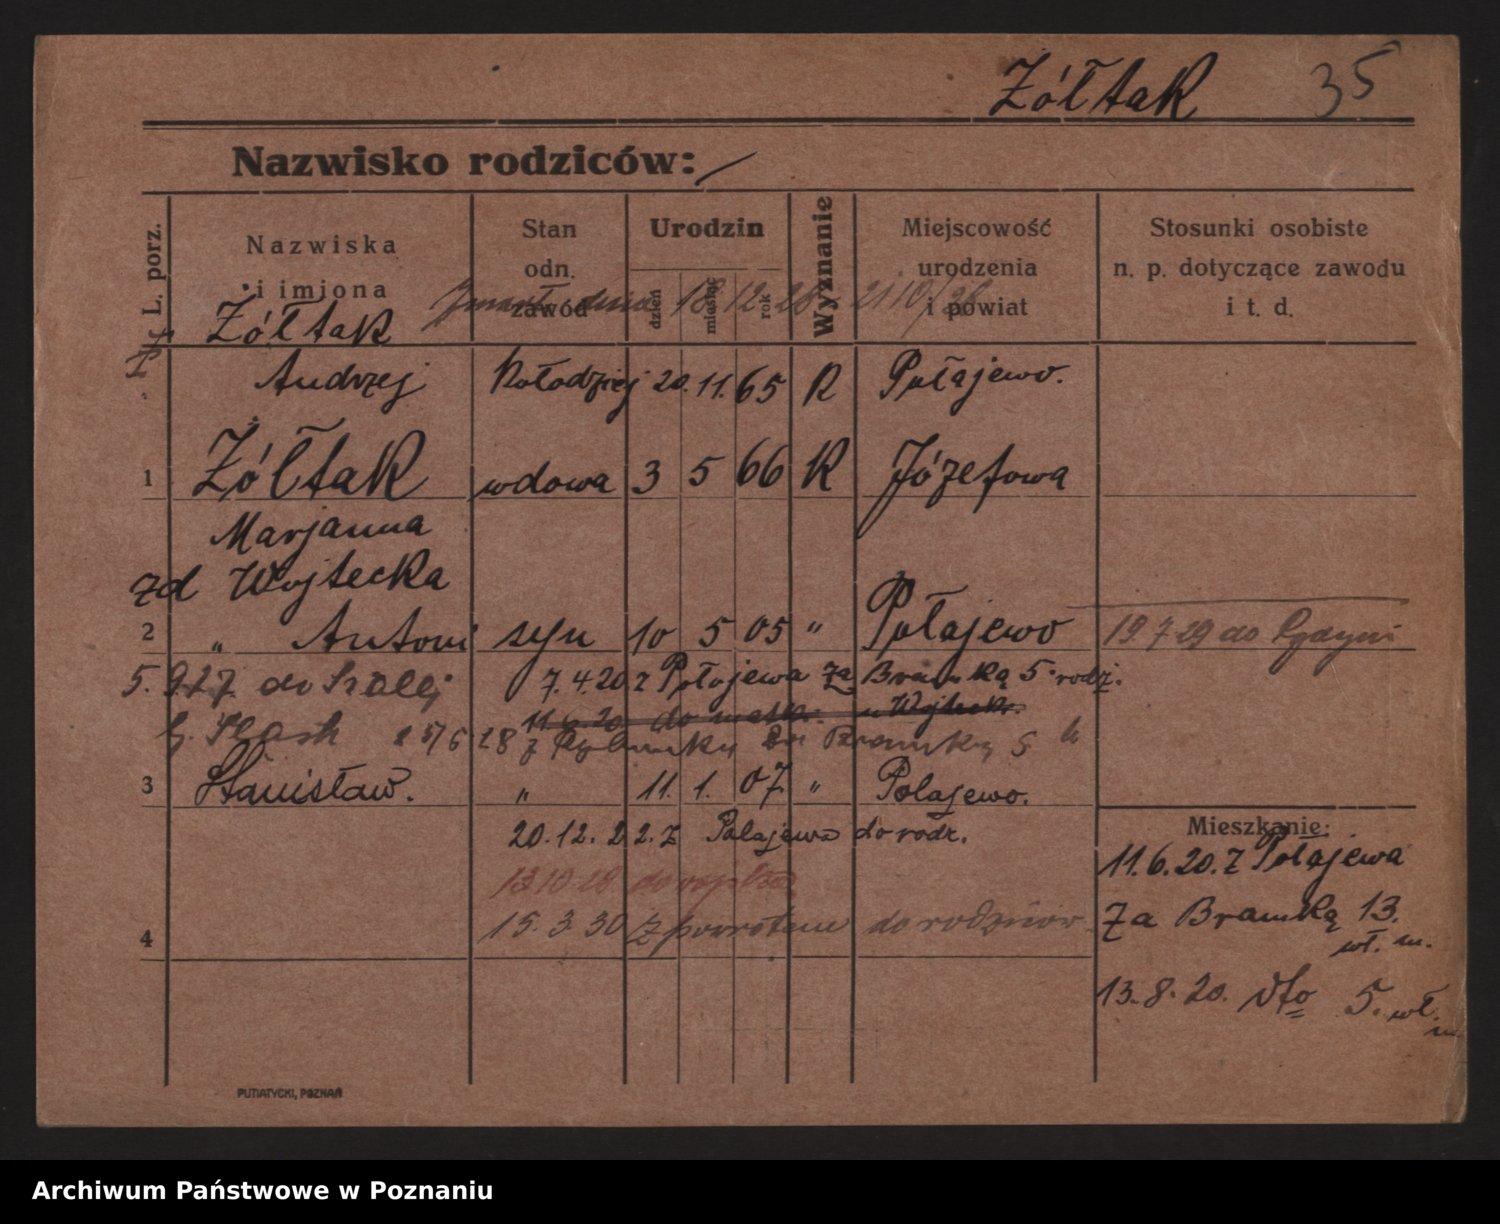 Żółtak 35
Nazwisko rodziców:
L. porz.
Nazwiska
i imiona
Stan
odn.
zawód
Urodzin
dzień
miesiąc
rok
Wyznanie
Miejscowość
urodzenia
i powiat
Stosunki osobiste
n. p. dotyczące zawodu
i t. d.
Zmarł dnia 18 12 28
Żółtak
Andrzej Kołodziej 20. 11. 65 K Połajewo.
1 Żółtak wdowa 3 5 66 K Józefowa
Marjanna
zd Wojtecka
2 " Antoni syn 10 5 05 " Połajewo 19 7 29 do Gdyni
5. 9.27. do
7. 4. 20 z Połajewa Za Bramką 5 rodz.
11.6.20 do matk.
28 z Bramką 5
3 Stanisław. " 11. 1. 07. " Polajewo.
20. 12. 22. z Polajewa do rodz.
13 10 28 do
4 15. 3. 30 z powrotem do rodziców
Mieszkanie:
11. 6. 20. z Połajewa
Za Bramką 13.
wł. m.
13. 8. 20. dto 5. wł.
m.
PUTIATYCKI, POZNAŃ
Archiwum Państwowe w Poznaniu